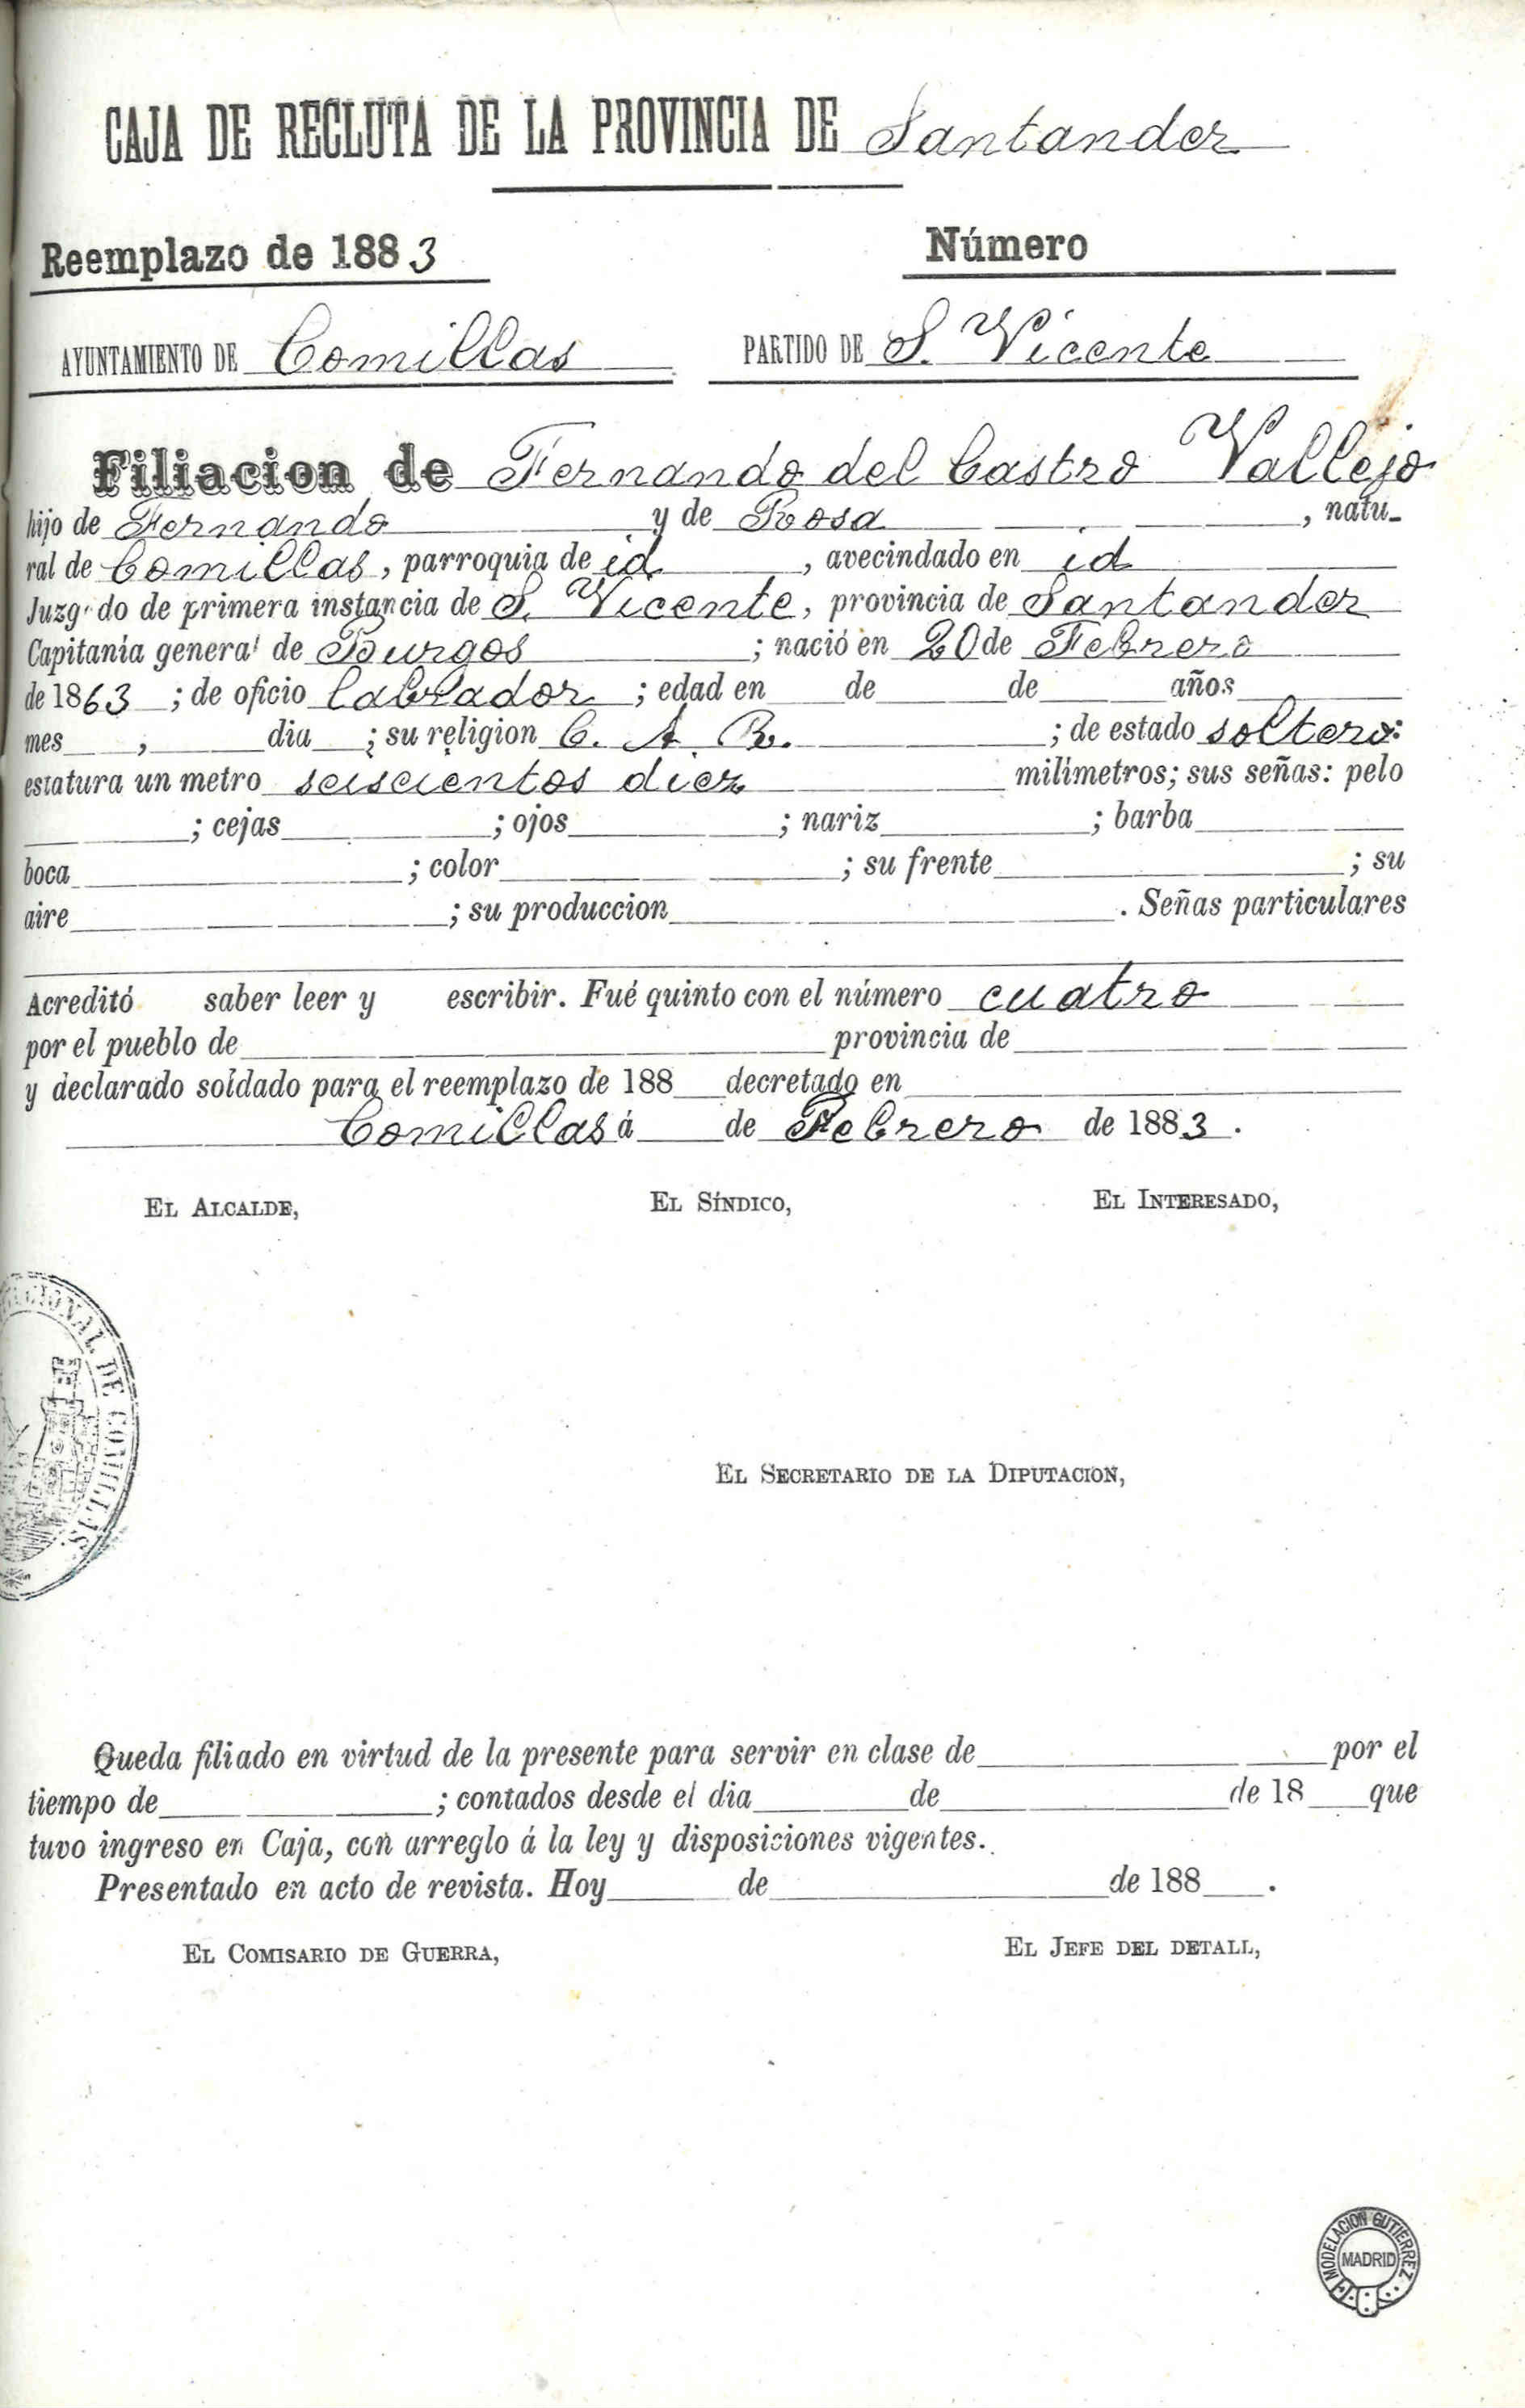 CAJA DE RECLUTA DE LA PROVINCIA DE Santander
Reemplazo de 1883 Número
AYUNTAMIENTO DE Comillas PARTIDO DE S. Vicente
Filiacion de Fernando del Castro Vallejo
hijo de Fernando y de Rosa, natu-
ral de Comillas, parroquia de id, avecindado en id
Juzgado de primera instancia de S. Vicente, provincia de Santander
Capitanía general de Burgos; nació en 20 de Febrero
de 1863; de oficio labrador; edad en de de años
mes, dia; su religion C. A. R.; de estado soltero:
estatura un metro seiscientos diez milímetros; sus señas: pelo
; cejas ; ojos ; nariz ; barba
boca ; color ; su frente ; su
aire ; su produccion . Señas particulares
Acreditó saber leer y escribir. Fué quinto con el número cuatro
por el pueblo de provincia de
y declarado soldado para el reemplazo de 188 decretado en
Comillas á de Febrero de 1883.
EL ALCALDE, EL SÍNDICO, EL INTERESADO,
CIONAL DE COMILLAS
EL SECRETARIO DE LA DIPUTACION,
Queda filiado en virtud de la presente para servir en clase de por el
tiempo de ; contados desde el dia de de 18 que
tuvo ingreso en Caja, con arreglo á la ley y disposiciones vigentes.
Presentado en acto de revista. Hoy de de 188 .
EL COMISARIO DE GUERRA, EL JEFE DEL DETALL,
MODELACION GUTIERREZ
MADRID